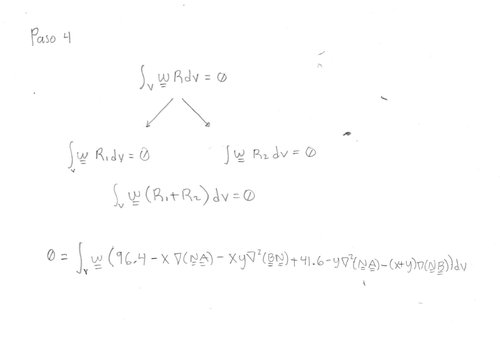 Paso 4
∫_v w̲ R dv = 0
∫_v w̲ R₁ dv = 0 ∫ w̲ R₂ dv = 0
∫_v w̲ (R₁ + R₂) dv = 0
0 = ∫_v w̲ (96.4 - x ∇(N̲A̲) - xy∇²(B̲N̲) + 41.6 - y∇²(N̲A̲) - (x+y)∇(N̲B̲)) dv